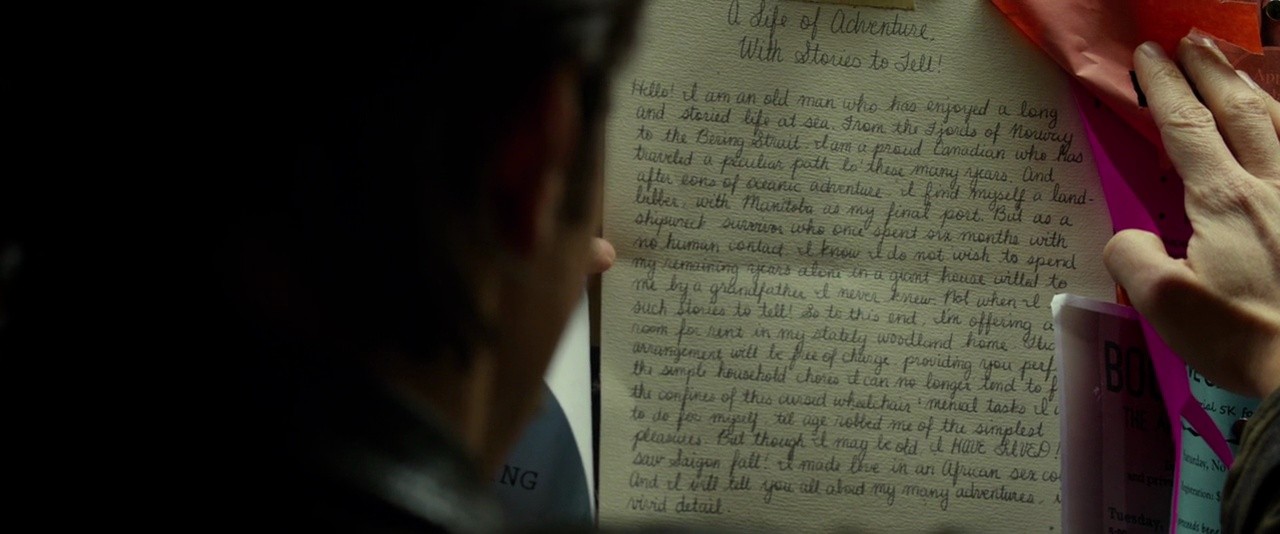 A Life of Adventure,
With Stories to Tell!
Hello! I am an old man who has enjoyed a long
and storied life at sea. From the Fjords of Norway
to the Bering Strait. I am a proud Canadian who has
traveled a peculiar path lo these many years. And
after eons of oceanic adventure, I find myself a land-
lubber, with Manitoba as my final port. But as a
shipwreck survivor who once spent six months with
no human contact, I know I do not wish to spend
my remaining years alone in a giant house willed to
me by a grandfather I never knew. Not when I
such stories to tell! So to this end, I'm offering a
room for rent in my stately woodland home.
arrangement will be free of charge providing you
the simple household chores I can no longer tend to
the confines of this cursed wheelchair: menial tasks I
to do for myself, 'til age robbed me of the simplest
pleasures. But though I may be old, I HAVE LIVED!
saw Saigon fall! I made love in an African sex
And I will tell you all about my many adventures,
vivid detail.
NG
5K
Saturday,
Tuesday,